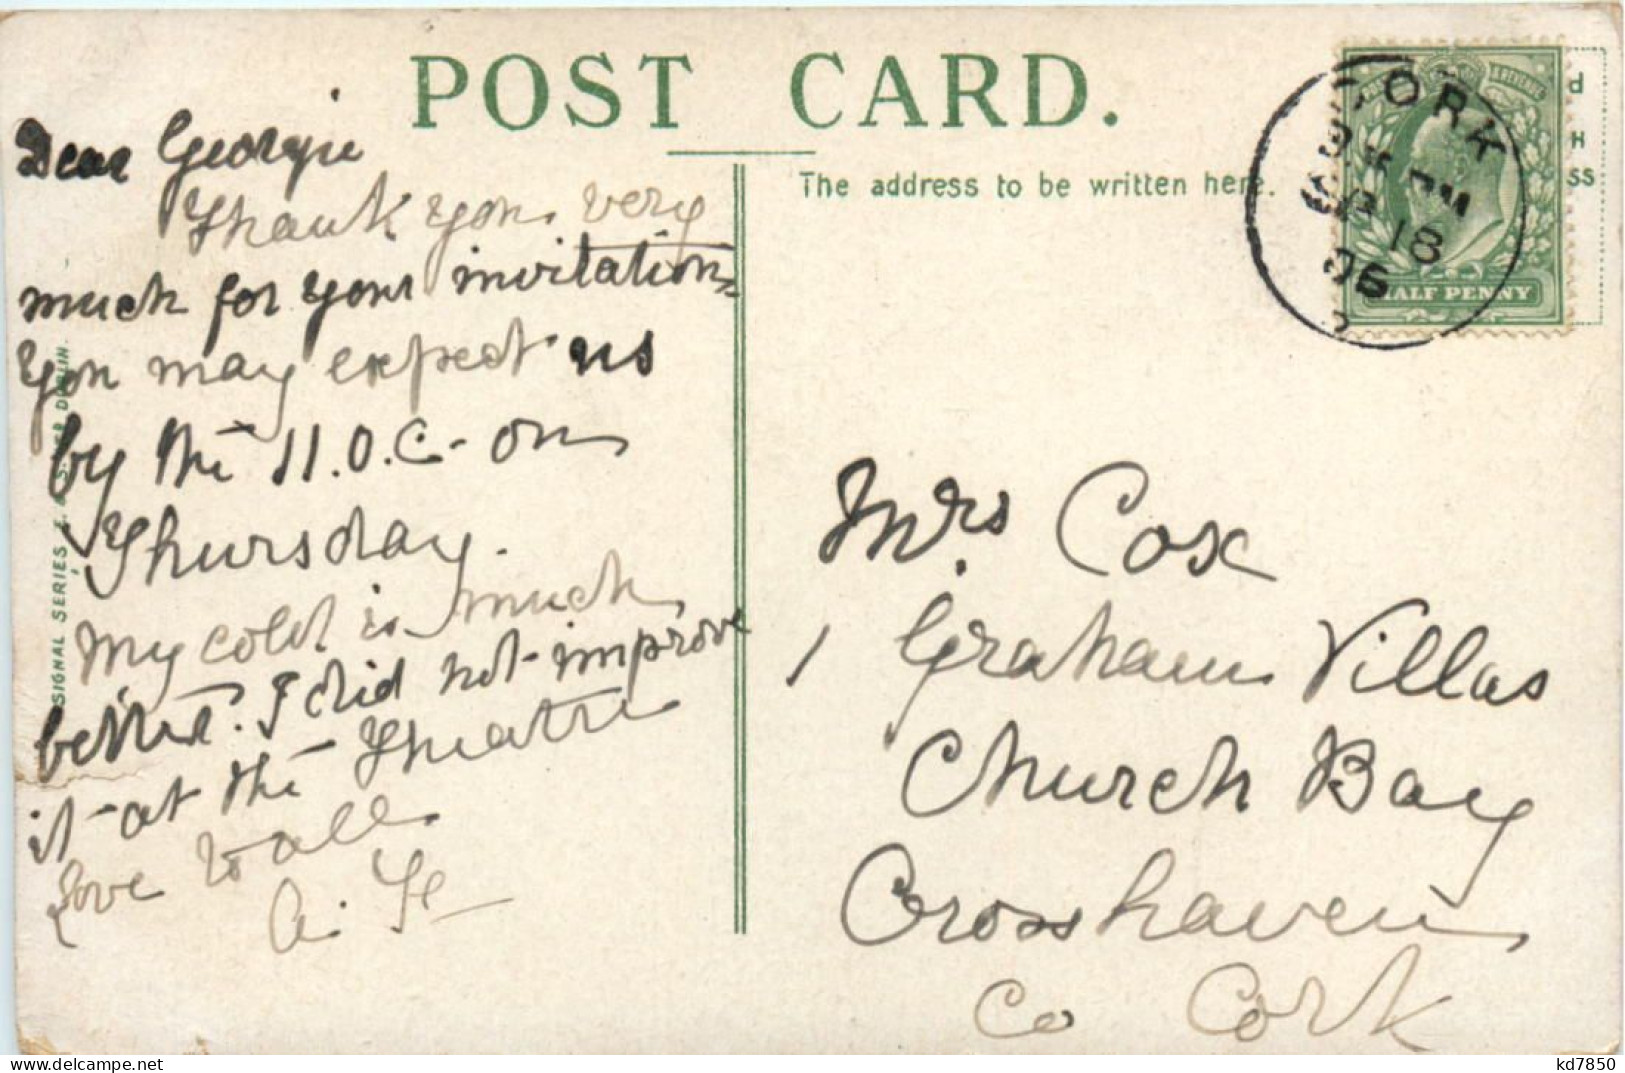 POST CARD.
The address to be written here.
Dear Georgie
Thank you very
much for your invitation
You may expect us
by the 11.0.C- on
Thursday.
My cold is much
better. I did not improve
it at the Theatre
Love to all
SIGNAL SERIES
DUBLIN.
Mrs Cox
1 Graham Villas
Church Bay
Crosshaven
Co Cork
CORK
PM
18
06
HALF PENNY
d
H
SS
delcampe.net
kd7850